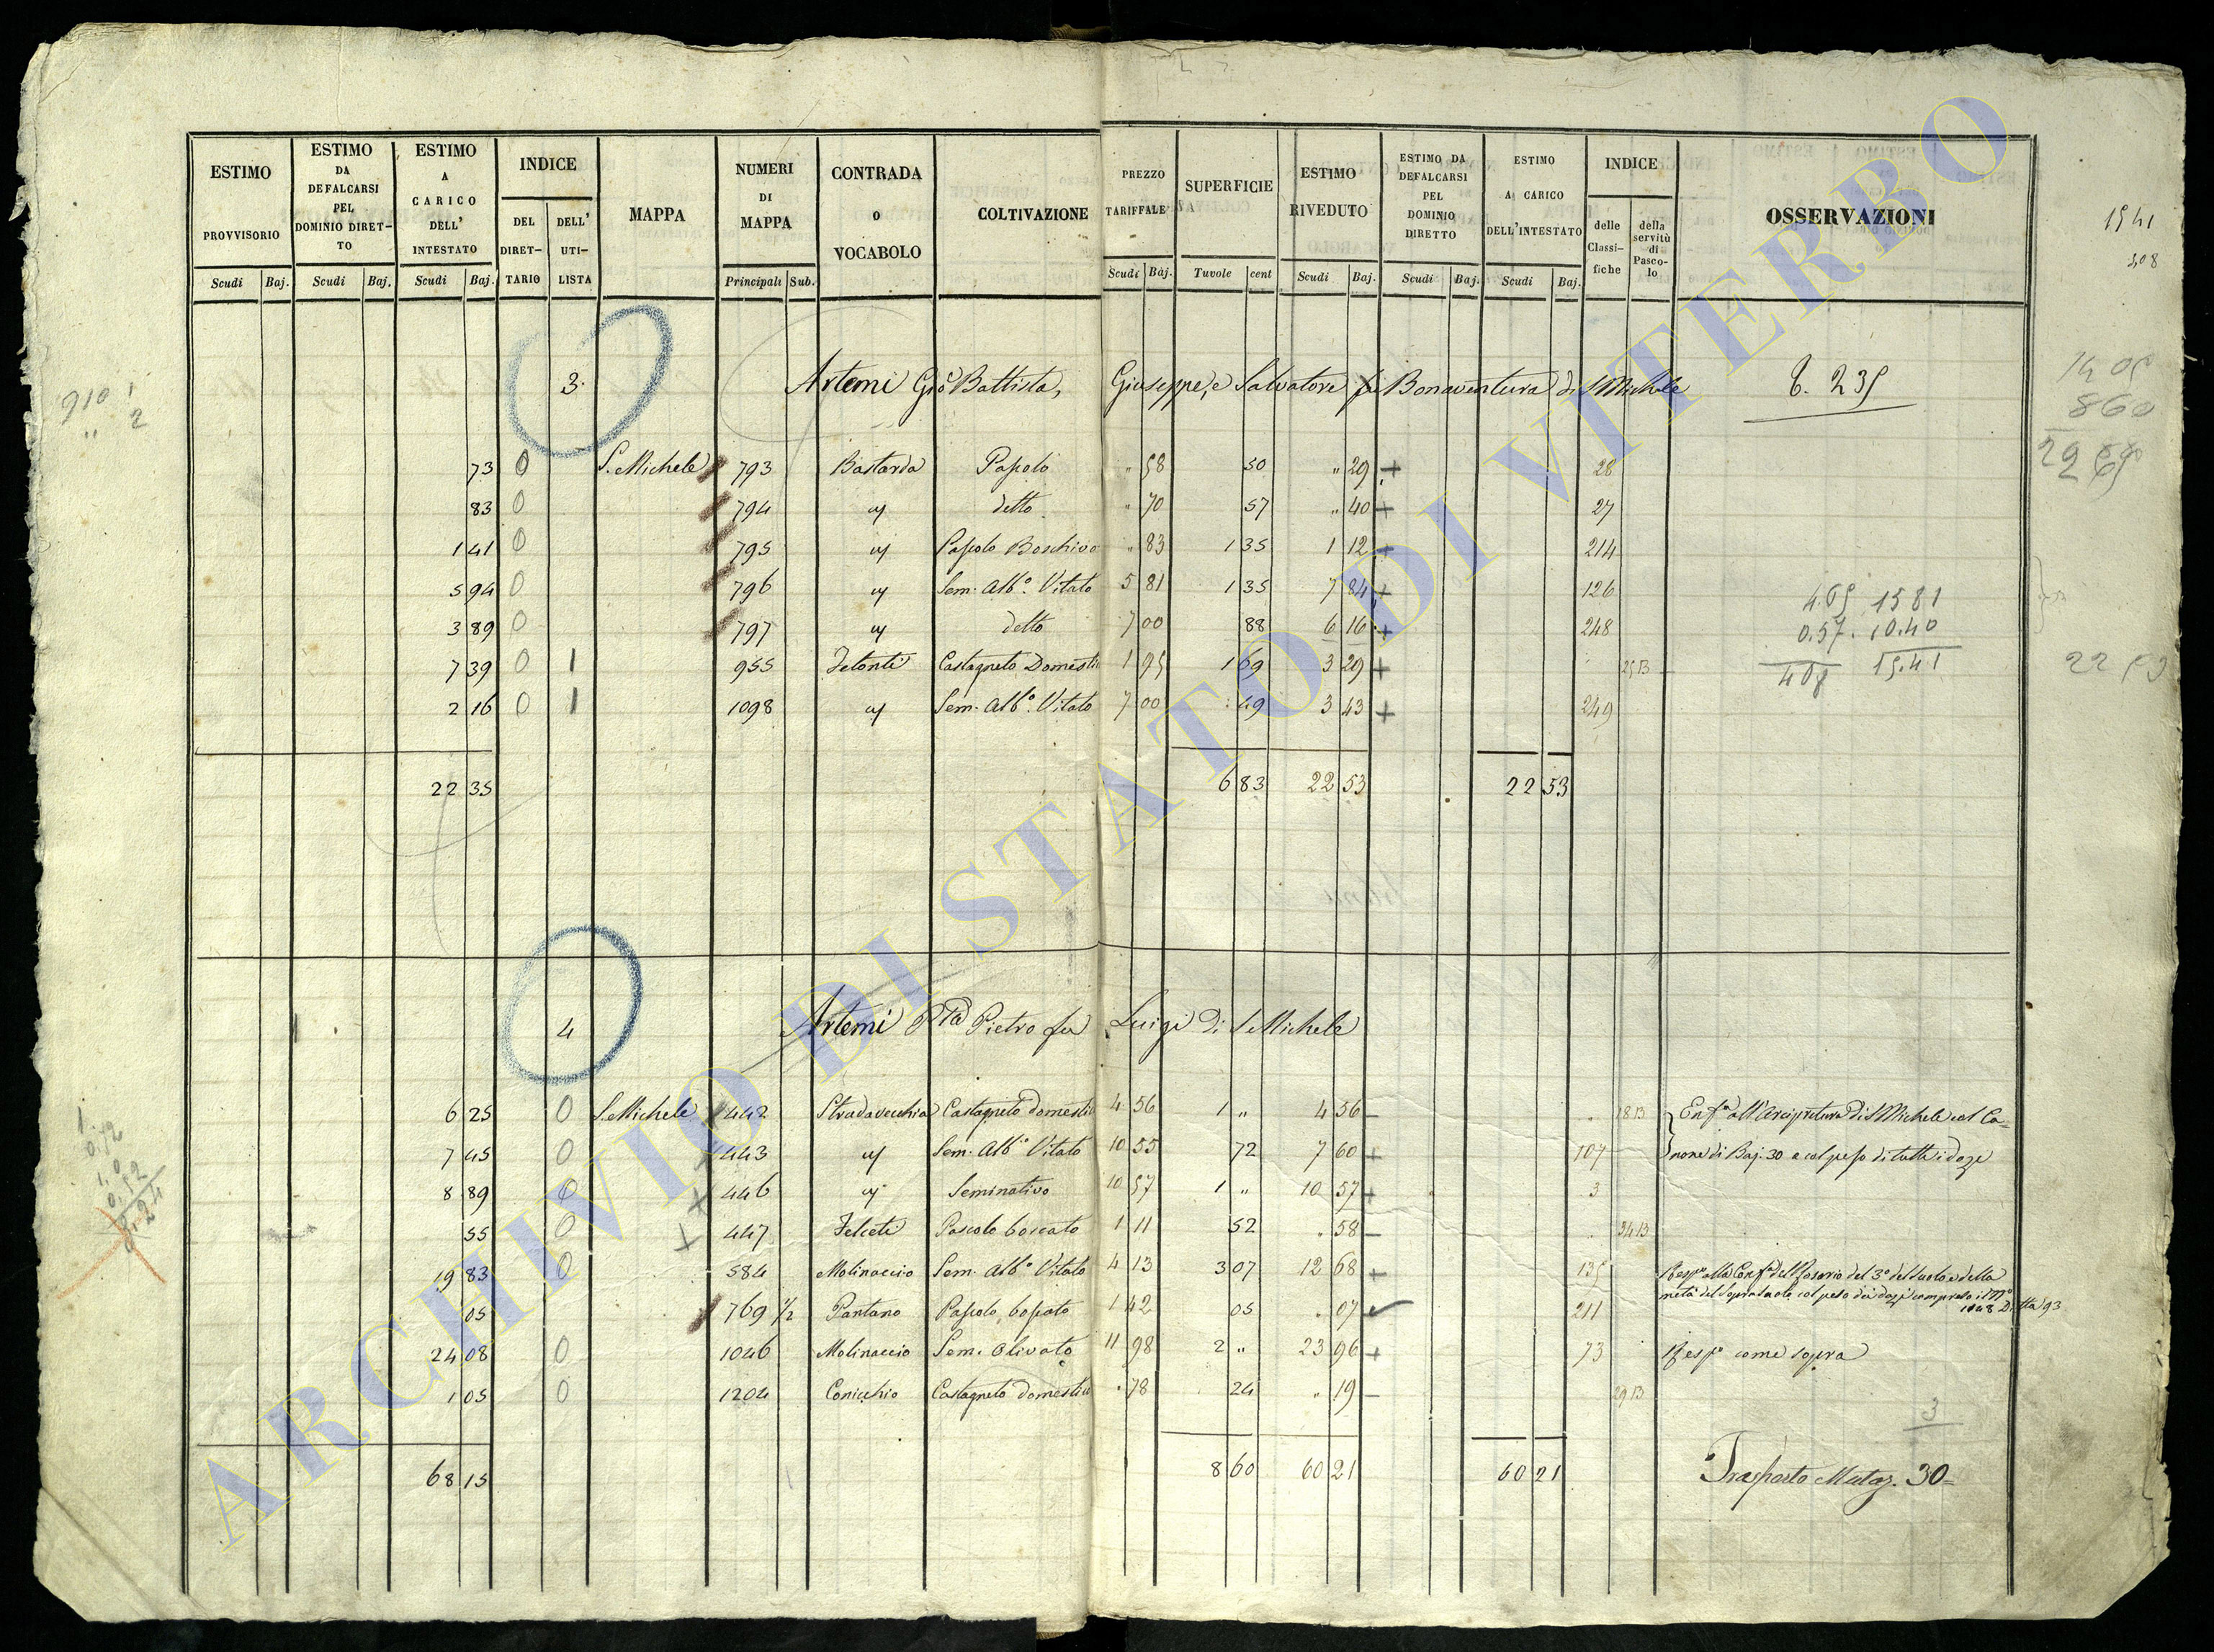 ESTIMO PROVVISORIO Scudi Baj.
ESTIMO DA DEFALCARSI PEL DOMINIO DIRET-TO Scudi Baj.
ESTIMO A CARICO DELL' INTESTATO Scudi Baj.
INDICE DEL DIRET-TARIO DELL' UTI-LISTA
MAPPA
NUMERI DI MAPPA Principali Sub.
CONTRADA O VOCABOLO
COLTIVAZIONE
PREZZO TARIFFALE Scudi Baj.
SUPERFICIE Tavole cent
ESTIMO RIVEDUTO Scudi Baj.
ESTIMO DA DEFALCARSI PEL DOMINIO DIRETTO Scudi Baj.
ESTIMO A CARICO DELL'INTESTATO Scudi Baj.
INDICE delle Classi-fiche della servitù di Pasco-lo
OSSERVAZIONI
3. Artemi Gio Battista, Giuseppe, e Salvatore fu Bonaventura di S Michele
73 0 S. Michele 793 Bastarda Pascolo " 58 50 " 29 + 28
83 0 794 detto " 70 57 " 40 + 27
1 41 0 795 Pascolo Boschivo " 83 1 35 1 12 + 214
5 94 0 796 Sem. Alb.º Vitato 5 81 1 35 7 84 + 126
3 89 0 797 detto 7 00 88 6 16 + 248
7 39 0 1 955 Castagneto Domestic 1 95 1 69 3 29 + 25 B
2 16 0 1 1098 Sem. Alb.º Vitato 7 00 49 3 43 + 249
22 35 6 83 22 53 22 53
4 Artemi Pietro fu Luigi di S Michele
6 25 0 S. Michele 442 Stradavecchia Castagneto domestic 4 56 1 " 4 56 18 B Enf.ª all'Arcipretura di S Michele col Ca=
7 45 0 443 Sem. Alb.º Vitato 10 55 72 7 60 + 107 none di Baj. 30 e col peso di tutti i dazi
8 89 0 446 Seminativo 10 57 1 " 10 57 + 3
55 0 447 Felceti Pascolo boscato 1 11 52 " 58 24 B
19 83 0 584 Molinaccio Sem. Alb.º Vitato 4 13 3 07 12 68 + 135 Resp.º alla Conf.ª del Rosario del 3º del suolo e della
metà del Soprasuolo col peso dei dazi compreso il Nº
05 769 1/2 Pantano Pascolo boscato 1 42 05 " 07 211 1048 Ditta 93
24 08 0 1046 Molinaccio Sem. Olivato 11 98 2 " 23 96 + 73 Resp.º come sopra
1 05 0 1204 Conicchio Castagneto domestic " 78 24 " 19 29 B
68 15 8 60 60 21 60 21 Trasporto Mutaz. 30=
ARCHIVIO DI STATO DI VITERBO